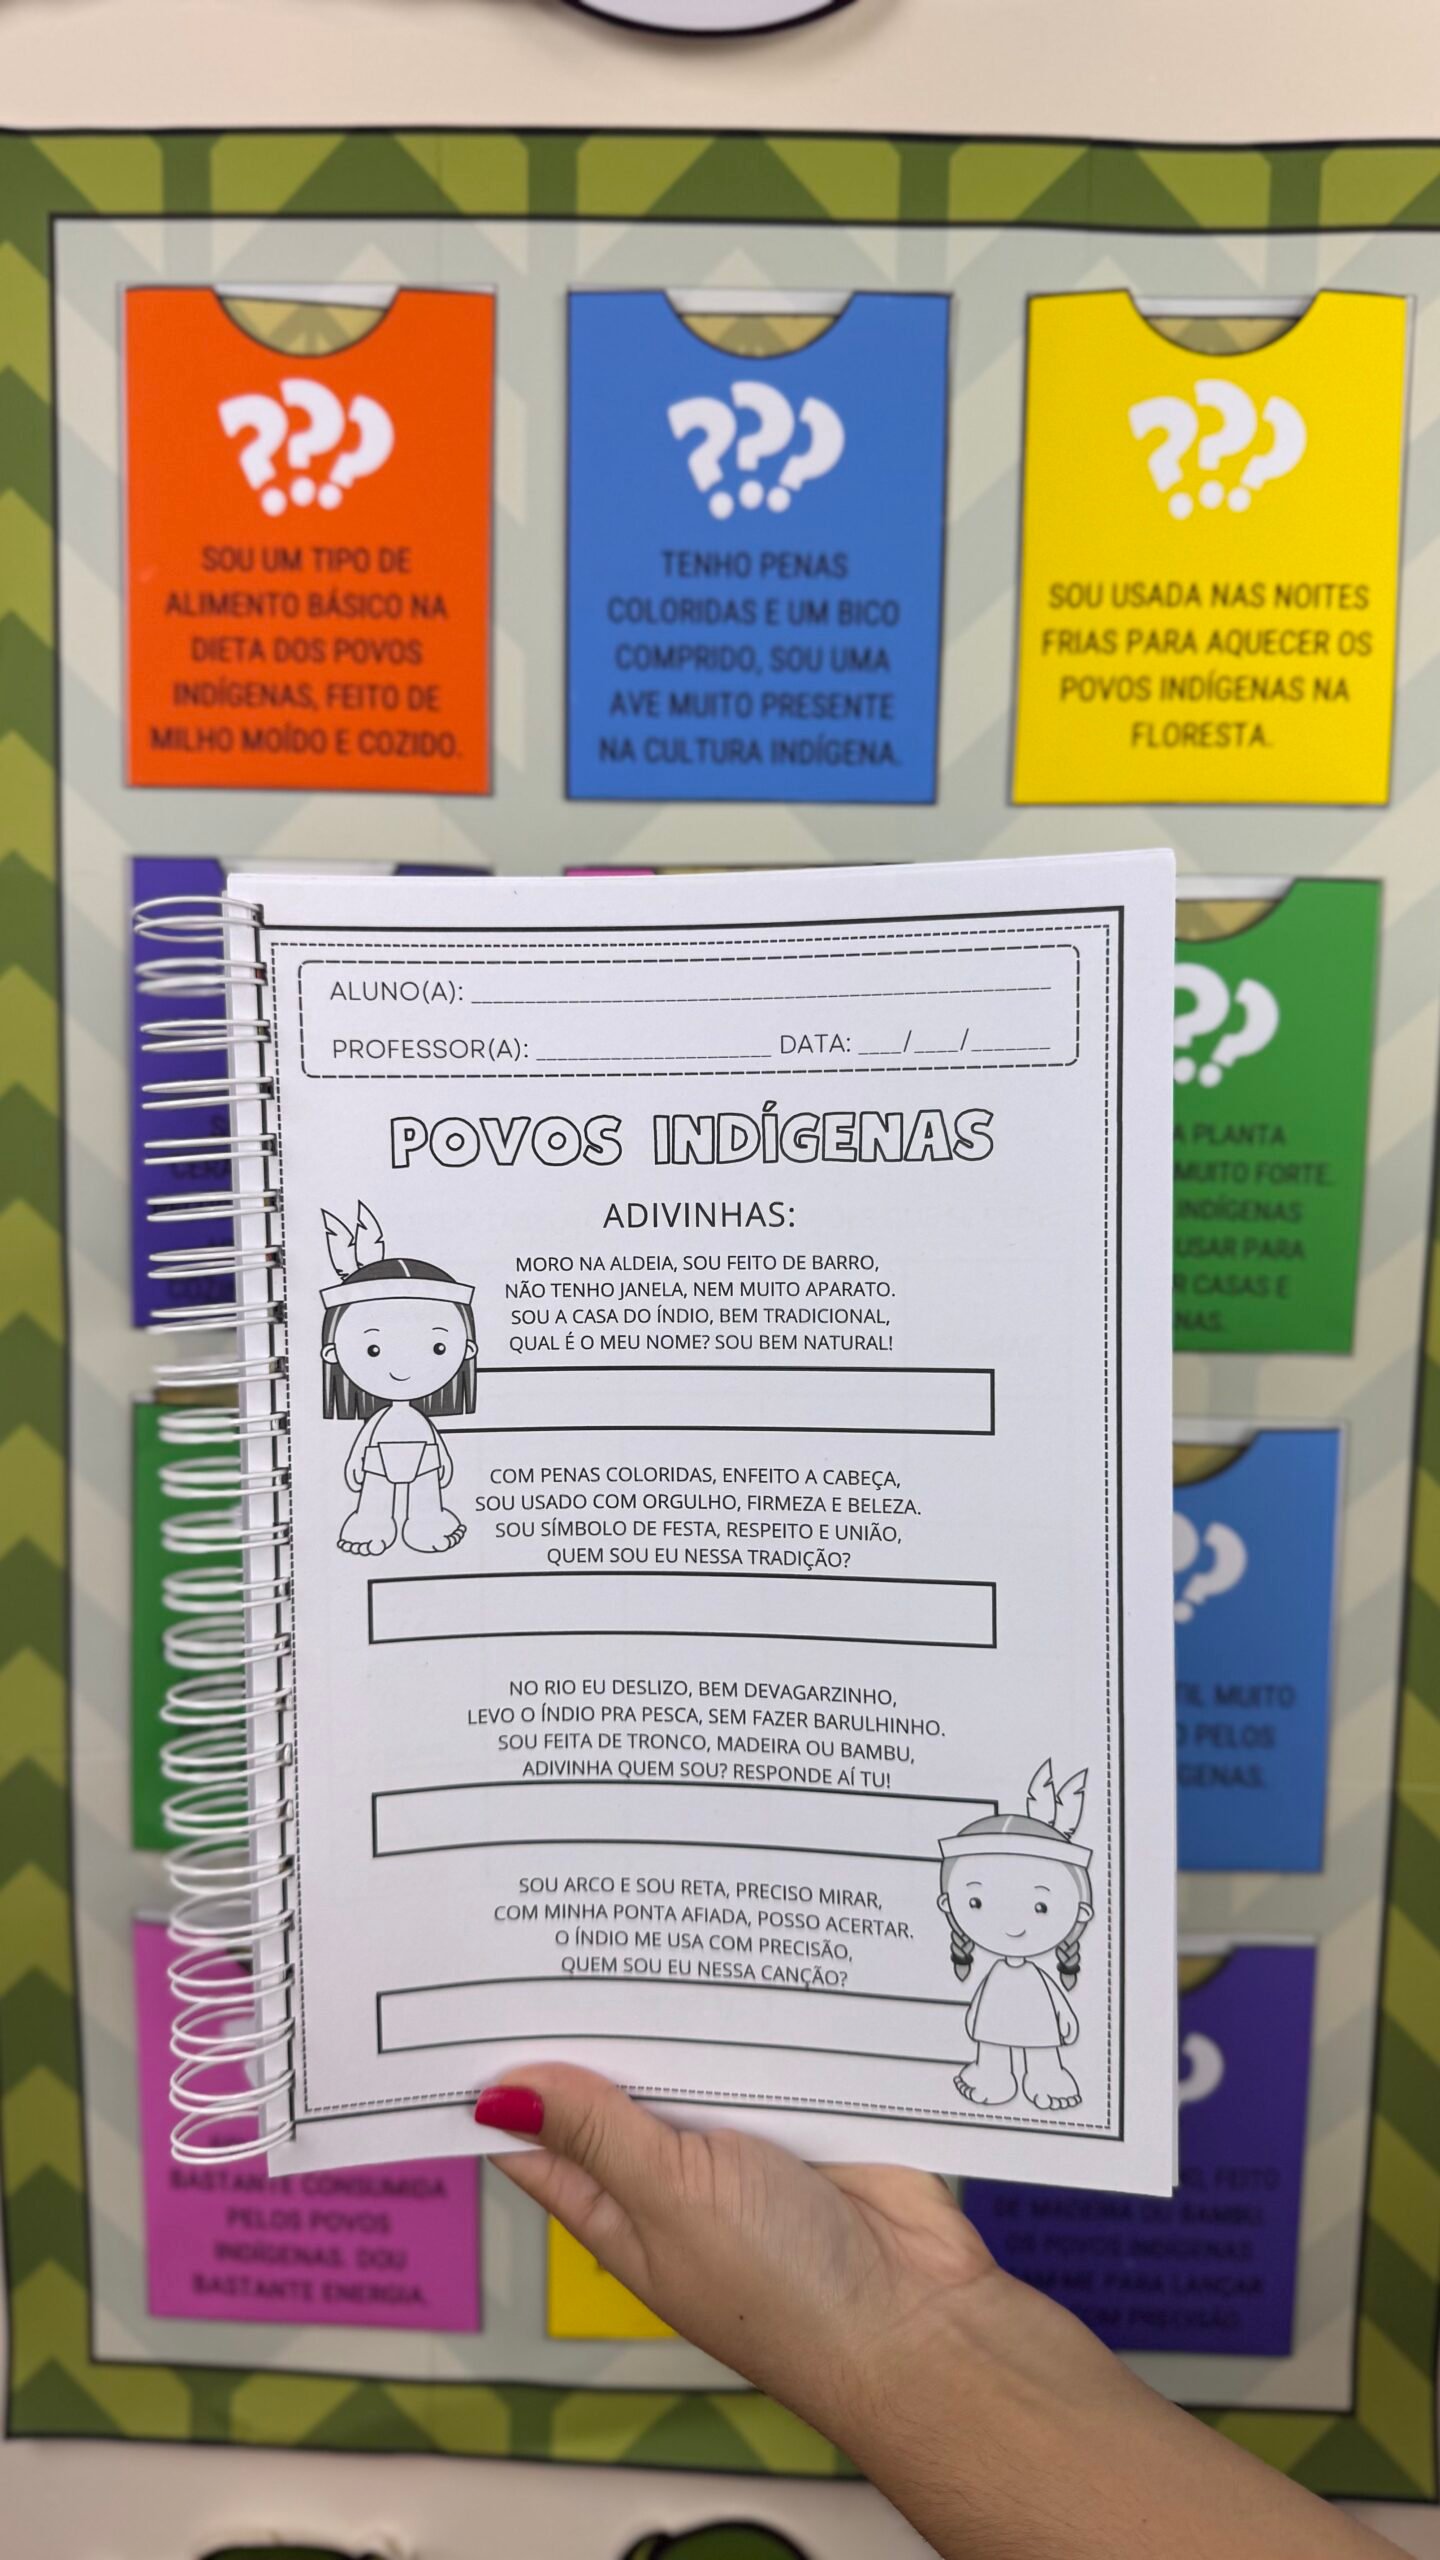 ???
SOU UM TIPO DE
ALIMENTO BÁSICO NA
DIETA DOS POVOS
INDÍGENAS, FEITO DE
MILHO MOÍDO E COZIDO.
???
TENHO PENAS
COLORIDAS E UM BICO
COMPRIDO, SOU UMA
AVE MUITO PRESENTE
NA CULTURA INDÍGENA.
???
SOU USADA NAS NOITES
FRIAS PARA AQUECER OS
POVOS INDÍGENAS NA
FLORESTA.
ALUNO(A):
PROFESSOR(A): DATA: / /
POVOS INDÍGENAS
ADIVINHAS:
MORO NA ALDEIA, SOU FEITO DE BARRO,
NÃO TENHO JANELA, NEM MUITO APARATO.
SOU A CASA DO ÍNDIO, BEM TRADICIONAL,
QUAL É O MEU NOME? SOU BEM NATURAL!
COM PENAS COLORIDAS, ENFEITO A CABEÇA,
SOU USADO COM ORGULHO, FIRMEZA E BELEZA.
SOU SÍMBOLO DE FESTA, RESPEITO E UNIÃO,
QUEM SOU EU NESSA TRADIÇÃO?
NO RIO EU DESLIZO, BEM DEVAGARZINHO,
LEVO O ÍNDIO PRA PESCA, SEM FAZER BARULHINHO.
SOU FEITA DE TRONCO, MADEIRA OU BAMBU,
ADIVINHA QUEM SOU? RESPONDE AÍ TU!
SOU ARCO E SOU RETA, PRECISO MIRAR,
COM MINHA PONTA AFIADA, POSSO ACERTAR.
O ÍNDIO ME USA COM PRECISÃO,
QUEM SOU EU NESSA CANÇÃO?
PLANTA
MUITO FORTE.
INDÍGENAS
USAR PARA
CASAS E
MUITO
PELOS
BASTANTE CONSUMIDA
PELOS POVOS
INDÍGENAS. DOU
BASTANTE ENERGIA.
FEITO
DE MADEIRA OU BAMBU.
OS POVOS INDÍGENAS
PARA LANÇAR
COM PRECISÃO.